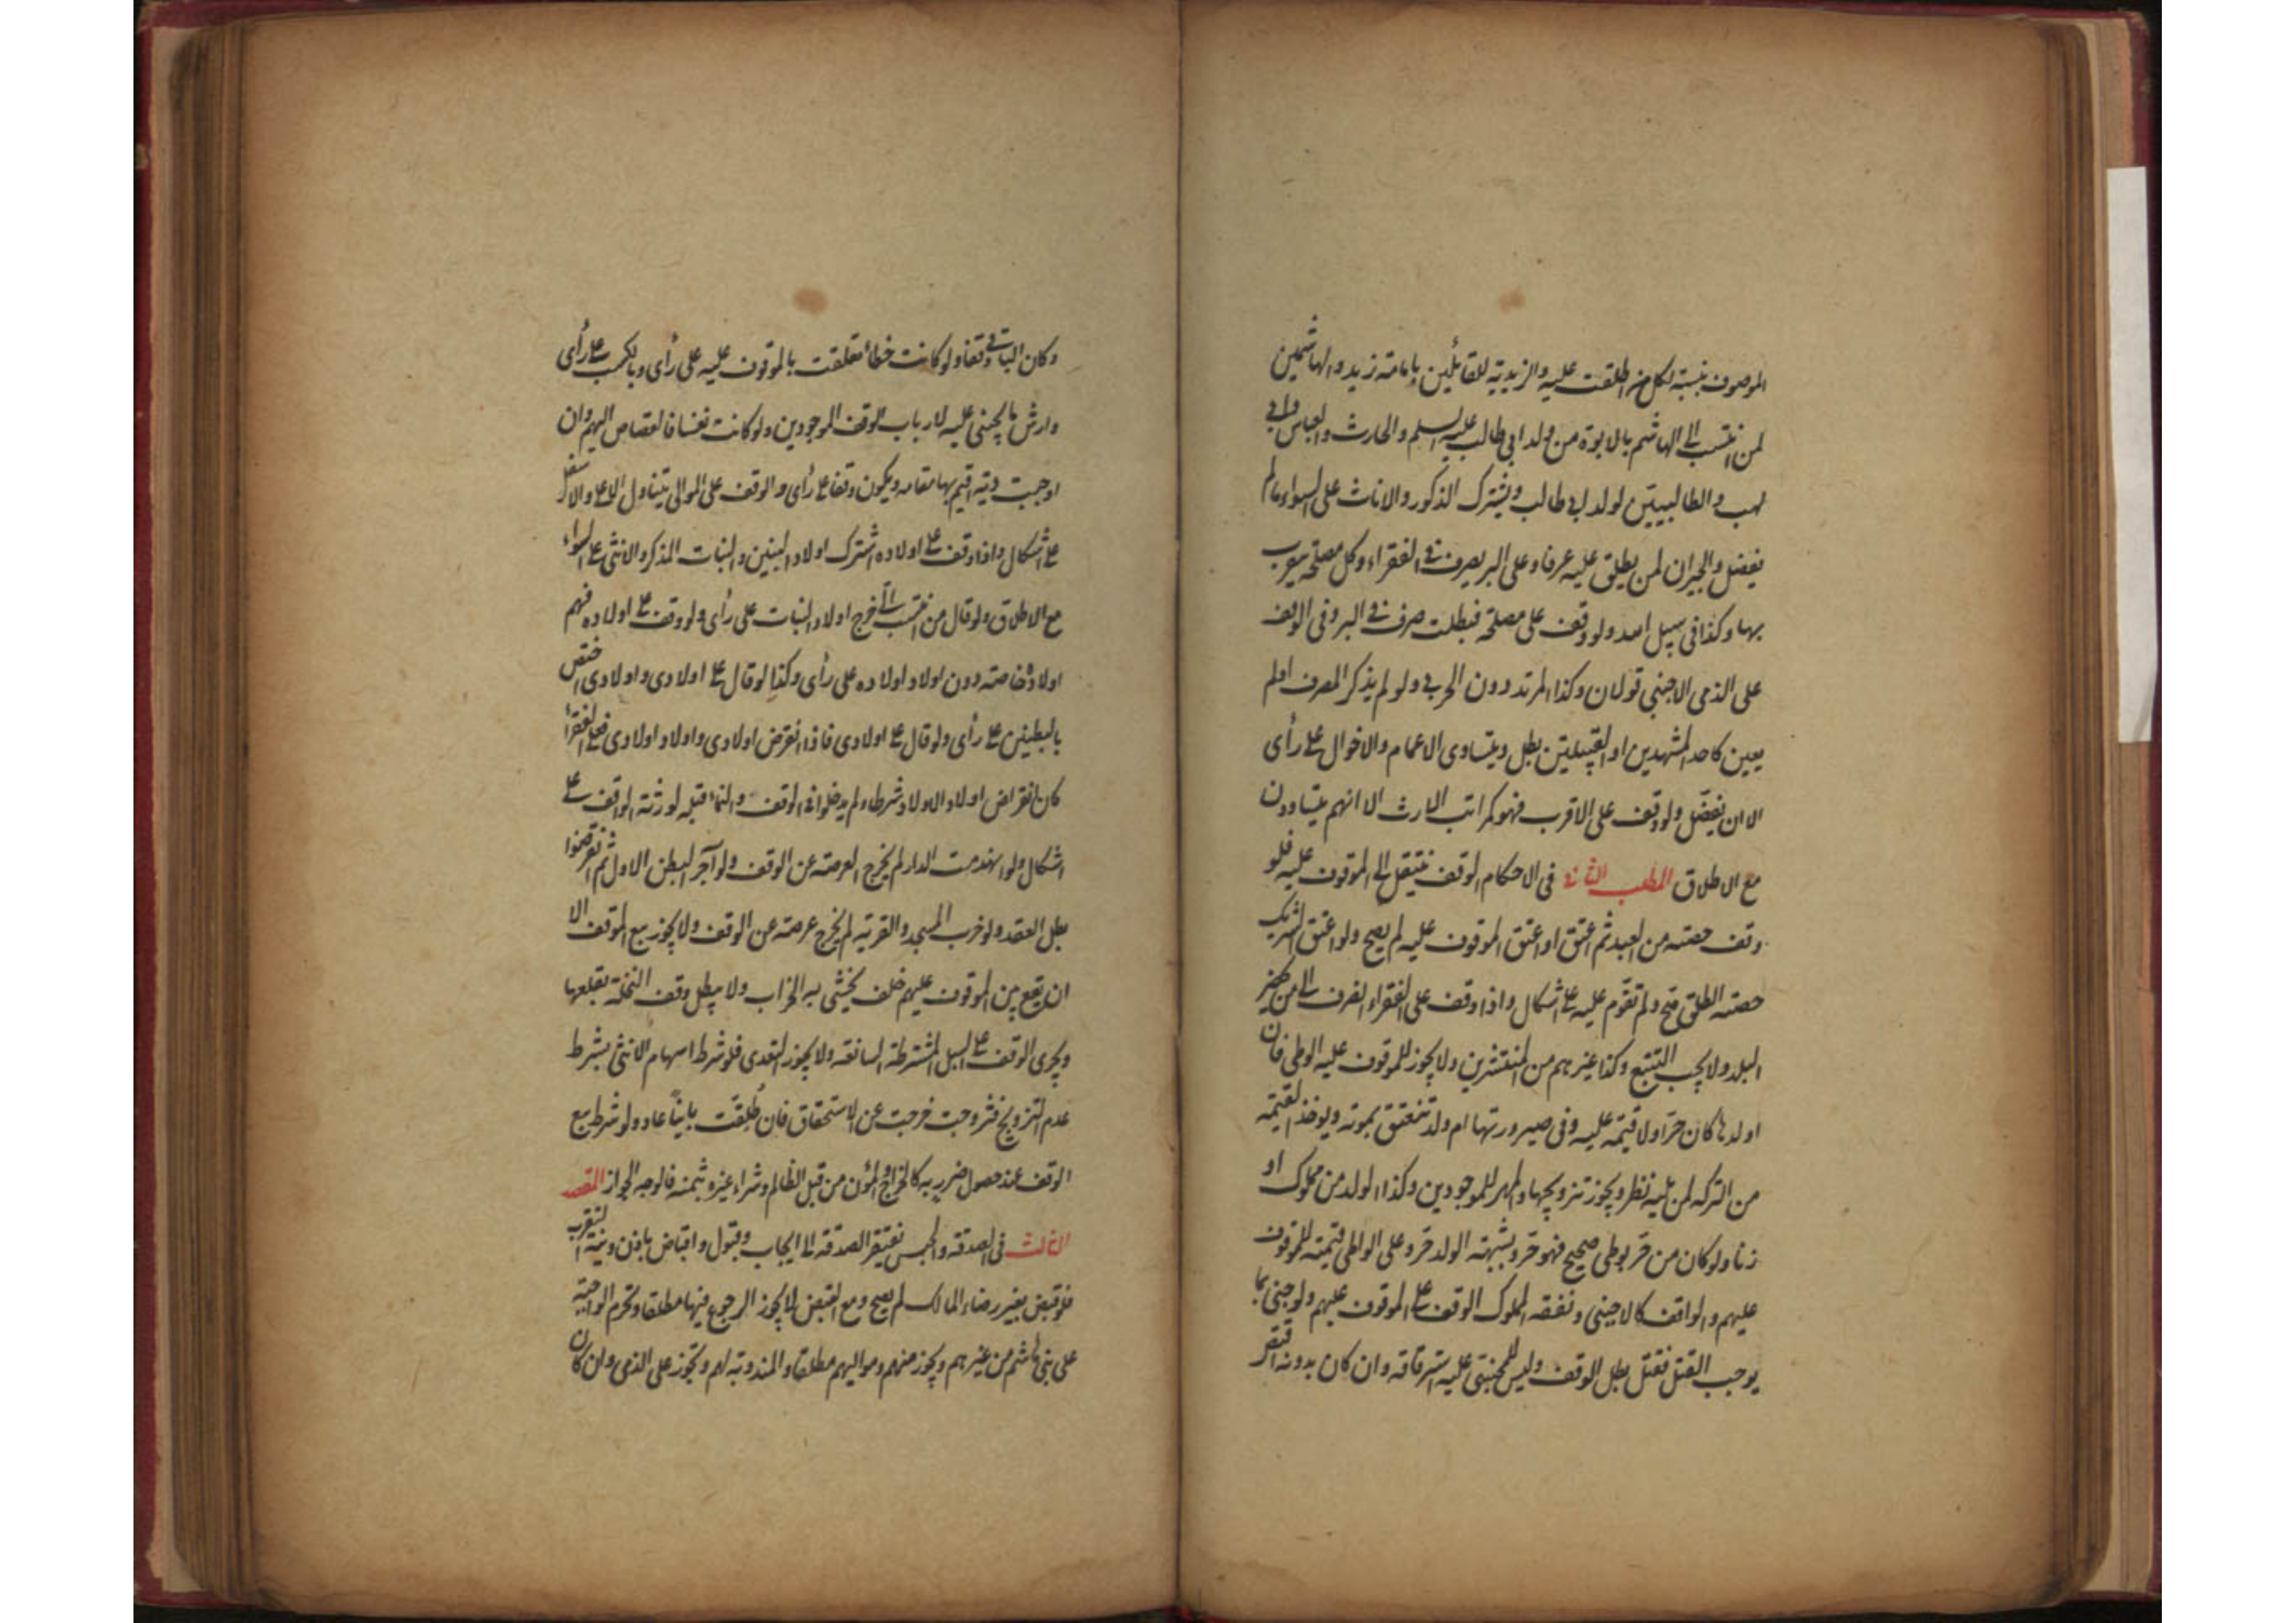 الموصوف بنسبته لكل من اطلقت عليه والزيدية للقائلين بامامة زيد والهاشميين
لمن انتسب الى الهاشم بالابوة من ولد ابي طالب عليه السلم والحارث والعباس وابي
لهب والطالبيين لولد ابي طالب ويشترك الذكور والاناث على السواء ما لم
يفضل والجيران لمن يطلق عليه عرفا وعلى البر يصرف في الفقراء وكل مصلحة يتقرب
بها وكذا في سبيل الله ولو وقف على مصلحة فبطلت صرف في البر وفي الوقف
على الذمي الاجنبي قولان وكذا المرتد دون الحربي ولو لم يذكر المصرف او لم
يعين كاحد المشهدين او القبيلتين بطل ويتساوى الاعمام والاخوال على رأى
الا ان يفضّل ولو وقف على الاقرب فهو كمراتب الارث الا انهم يتساوون
مع الاطلاق المطلب الثاني في الاحكام الوقف ينتقل الى الموقوف عليه فلو
وقف حصته من العبد ثم اعتق او اعتق الموقوف عليه لم يصح ولو اعتق الشريك
حصته الطلق صح ولم تقوّم عليه على اشكال واذا وقف على الفقراء انصرف الى من يحضر
البلد ولا يجب التتبع وكذا غيرهم من المنتشرين ولا يجوز للموقوف عليه الوطى فان
اولدها كان حرّا ولا قيمة عليه وفى صيرورتها ام ولد تنعتق بموته ويوخذ القيمة
من التركة لمن يليه نظر ويجوز تزويجها والمهر للموجودين وكذا الولد من مملوك او
زنا ولو كان من حر بوطى صحيح فهو حر وبشبهة الولد حر وعلى الواطى قيمته للموقوف
عليهم والواقف كالاجنبي ونفقة المملوك الوقف على الموقوف عليهم ولو جنى بما
يوجب القتل فقتل بطل الوقف وليس للمجنى عليه استرقاقه وان كان بدونه اقتص
وكان الباقي وقفا ولو كانت خطأ تعلقت بالموقوف عليه على رأى وبالكسب على رأى
وارش ما يجنى عليه لارباب الوقف الموجودين ولو كانت نفسا فالقصاص اليهم وان
اوجبت دية اقيم بها مقامه ويكون وقفا على رأى والوقف على الموالى يتناول الاعلى والاسفل
على اشكال واذا وقف على اولاده اشترك اولاد البنين والبنات الذكر والانثى على السواء
مع الاطلاق ولو قال من انتسب الىّ خرج اولاد البنات على رأى ولو وقف على اولاده فهم
اولاده خاصة دون اولاد اولاده على رأى وكذا لو قال على اولادى واولادى اختص
بالبطنين على رأى ولو قال على اولادى فاذا انقرض اولادى واولاد اولادى فعلى الفقرأ
كان انقراض اولاد الاولاد شرطا ولم يدخلوا في الوقف والنماء قبله لورثة الواقف على
اشكال ولو انهدمت الدار لم يخرج العرصة عن الوقف ولو آجر البطن الاول ثم انقرضوا
بطل العقد ولو خرب المسجد والقرية لم يخرج عرصته عن الوقف ولا يجوز بيع الوقف الا
ان يقع بين الموقوف عليهم خلف يخشى به الخراب ولا يبطل وقف النخلة بقلعها
ويجرى الوقف على السبل المشترطة السائغة ولا يجوز التعدى فلو شرط اسهام الانثى بشرط
عدم التزويج فتزوجت خرجت عن الاستحقاق فان طُلقت بايناً عاد ولو شرط بيع
الوقف عند حصول ضرر به كالخراج والمؤن من قبل الظالم وشراء غيره بثمنه فالوجه الجواز المقصد
الثالث في الصدقة والحبس تفتقر الصدقة الى ايجاب وقبول واقباض باذن ونية التقرب
فلو قبض بغير رضاء المالك لم يصح ومع القبض لا يجوز الرجوع فيها مطلقا وتحرم الواجبة
على بنى هاشم من غيرهم ويجوز منهم ومواليهم مطلقا والمندوبة لهم وتجوز على الذمى وان كان